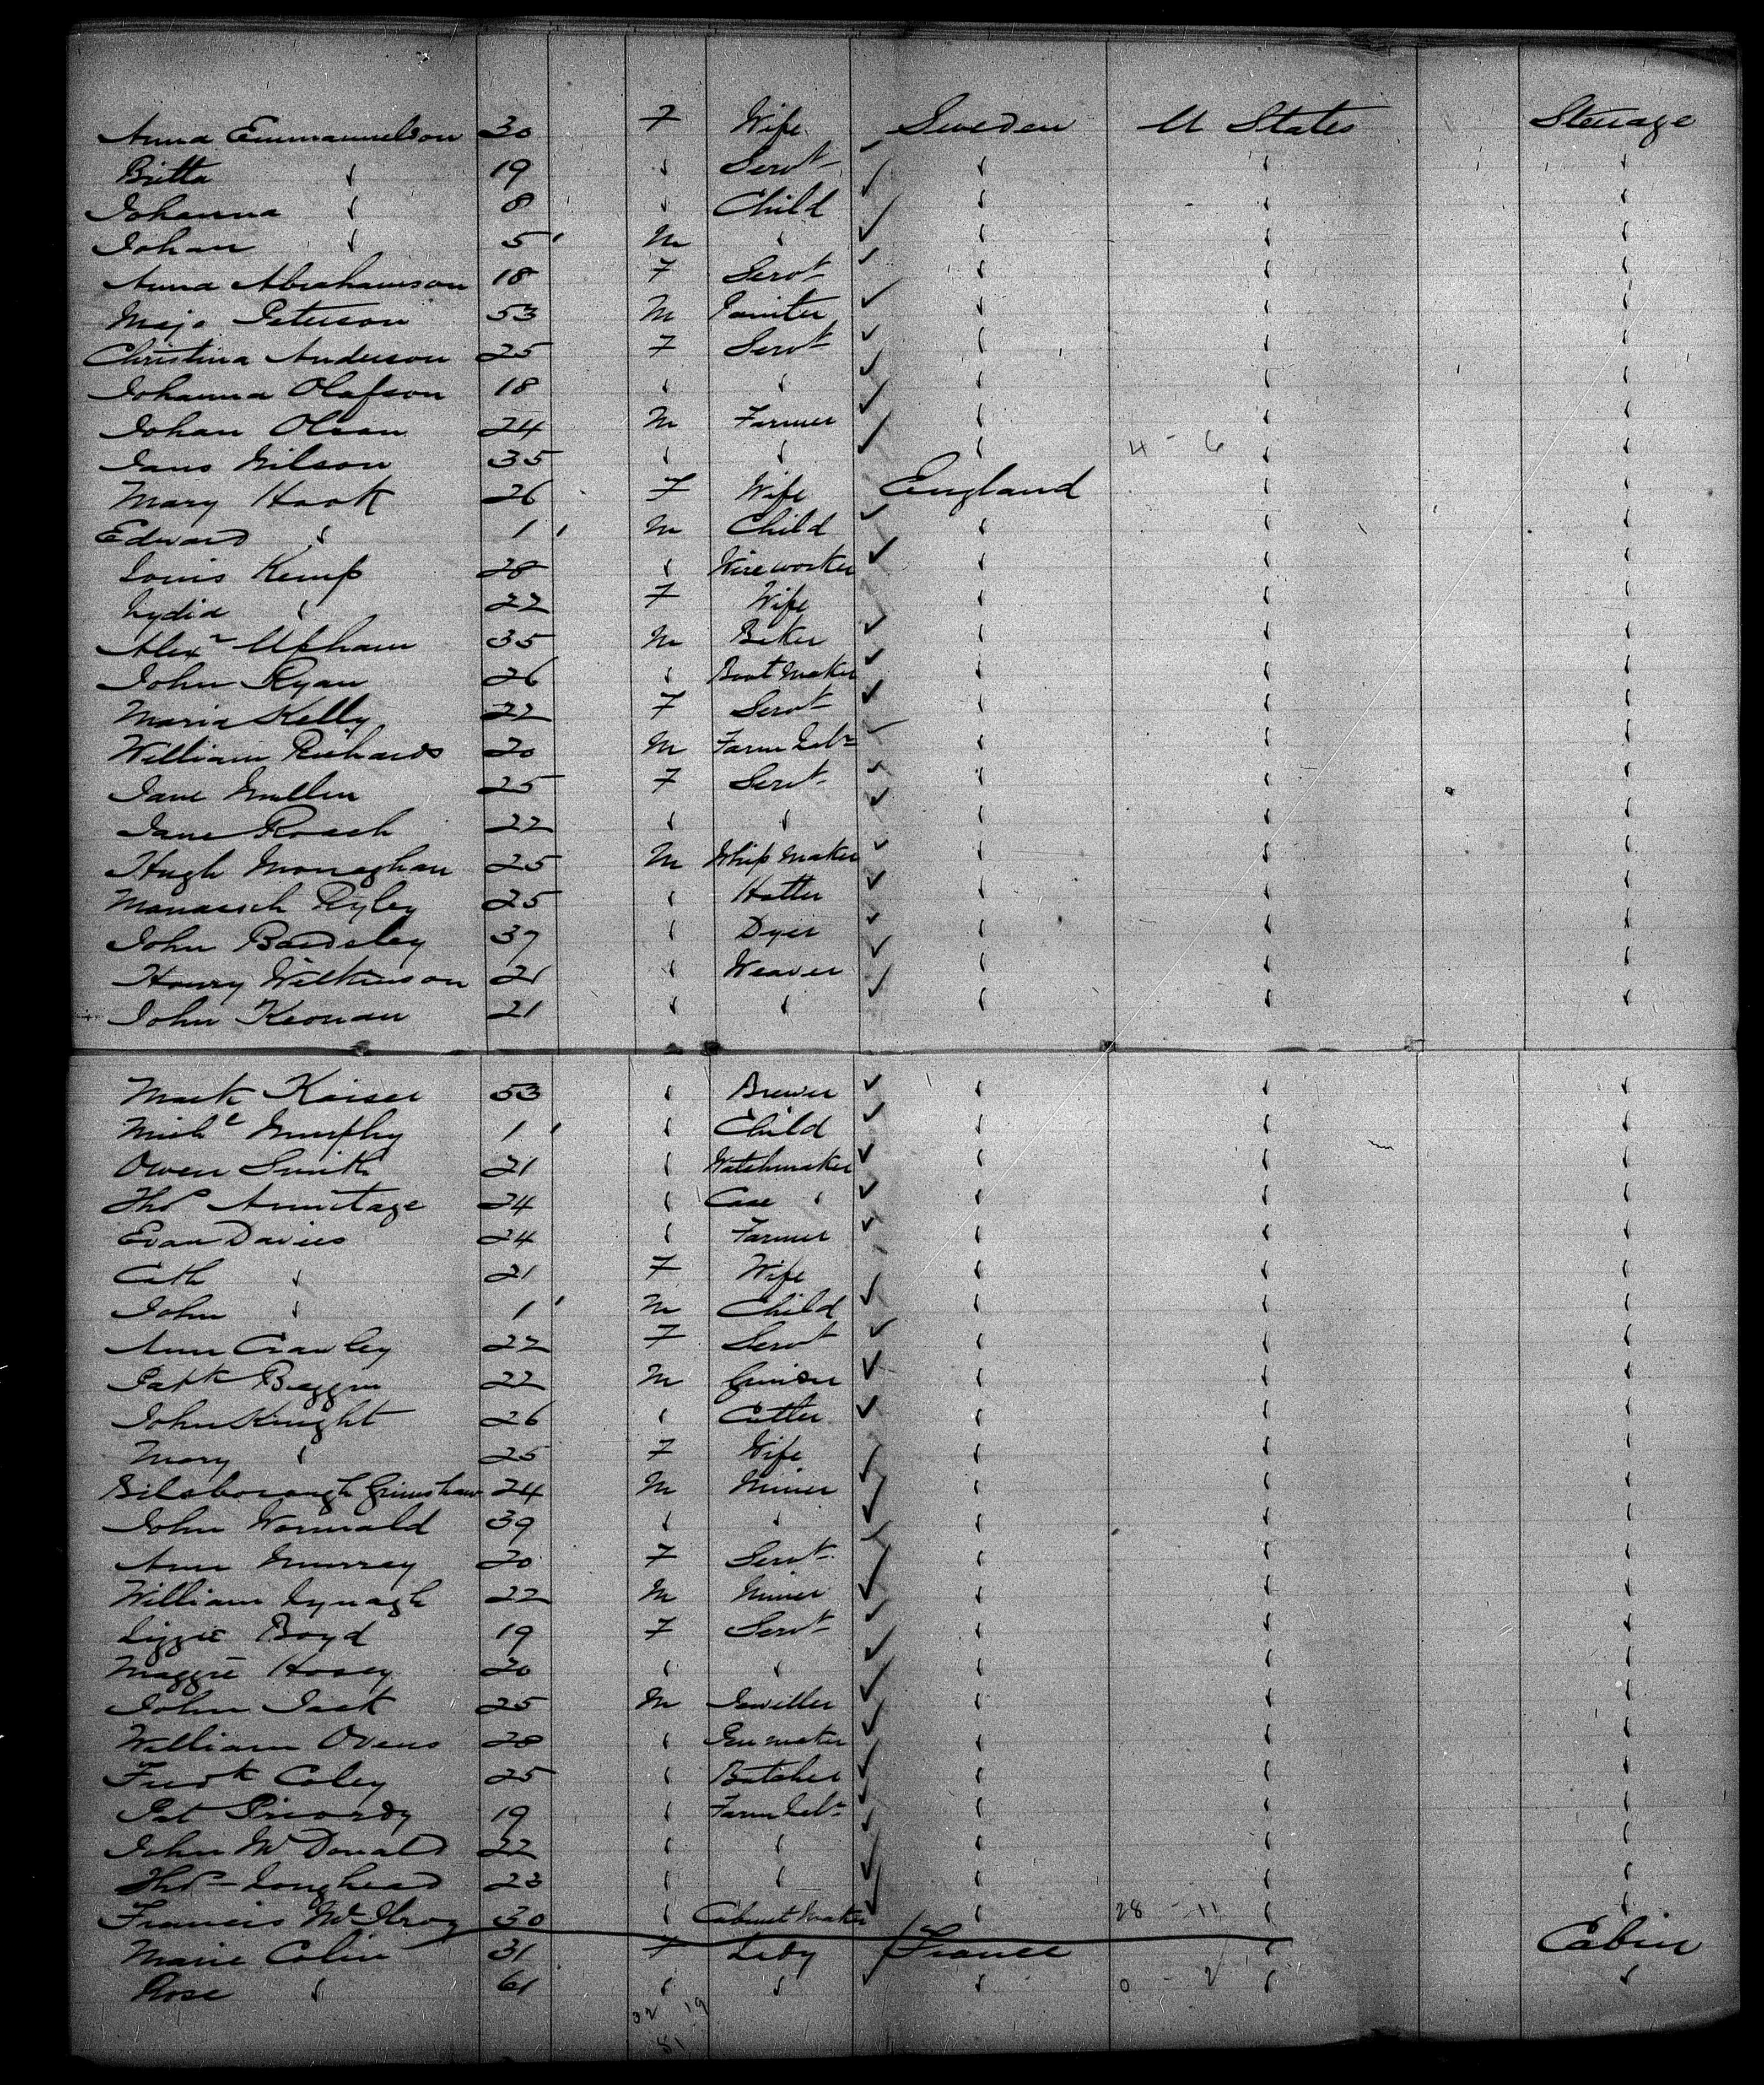 Anna Emmanuelson 30 F Wife Sweden U States Steerage
Britta " 19 " Servt " " "
Johanna " 8 " Child " " "
Johan " 5 M " " " "
Anna Abrahamson 18 F Servt " " "
Maja Peterson 53 M Painter " " "
Christina Anderson 25 F Servt " " "
Johanna Olafson 18 " " " " "
Johan Olson 24 M Farmer " " "
Jans Nilson 35 " " " 4 - 6 " "
Mary Hook 26 F Wife England " "
Edward " 1 M Child " " "
Louis Kemp 28 " Wireworker " " "
Lydia " 22 F Wife " " "
Alexr Upham 35 M Baker " " "
John Ryan 26 " Boot Maker " " "
Maria Kelly 22 F Servt " " "
William Richards 20 M Farm Labr " " "
Jane Mullen 25 F Servt " " "
Jane Roach 22 " " " " "
Hugh Monaghan 25 M Whip Maker " " "
Manasseh Ryley 25 " Hatter " " "
John Bardsley 37 " Dyer " " "
Henry Wilkinson 21 " Weaver " " "
John Keonan 21 " " " " "
Mark Kaiser 53 " Brewer " " "
Michl Murphy 1 " Child " " "
Owen Smith 21 " Watchmaker " " "
Thos Armitage 24 " Case " " " "
Evan Davies 24 " Farmer " " "
Cath " 21 F Wife " " "
John " 1 M Child " " "
Ann Crawley 22 F Servt " " "
Patk 22 M " " "
John Knight 26 " Cutler " " "
Mary " 25 F Wife " " "
Bilsborough Grimshaw 24 M Miner " " "
John Wormald 39 " " " " "
Ann Murray 20 F Servt " " "
William Lynagh 22 M Miner " " "
Lizzie Boyd 19 F Servt " " "
Maggie Hovey 20 " " " " "
John Jack 25 M Jeweller " " "
William Owens 28 " Gunmaker " " "
Fredk Coley 25 " Butcher " " "
Pat 19 " Farm Labr " " "
John McDonald 22 " " " " "
Thos Longhead 23 " " " " "
Francis McIlroy 30 " Cabinet Maker " 28 - 11 " "
Marie Colin 31 F Lady France " Cabin
Rose " 61 " " " 0 - 2 " "
32 19
81